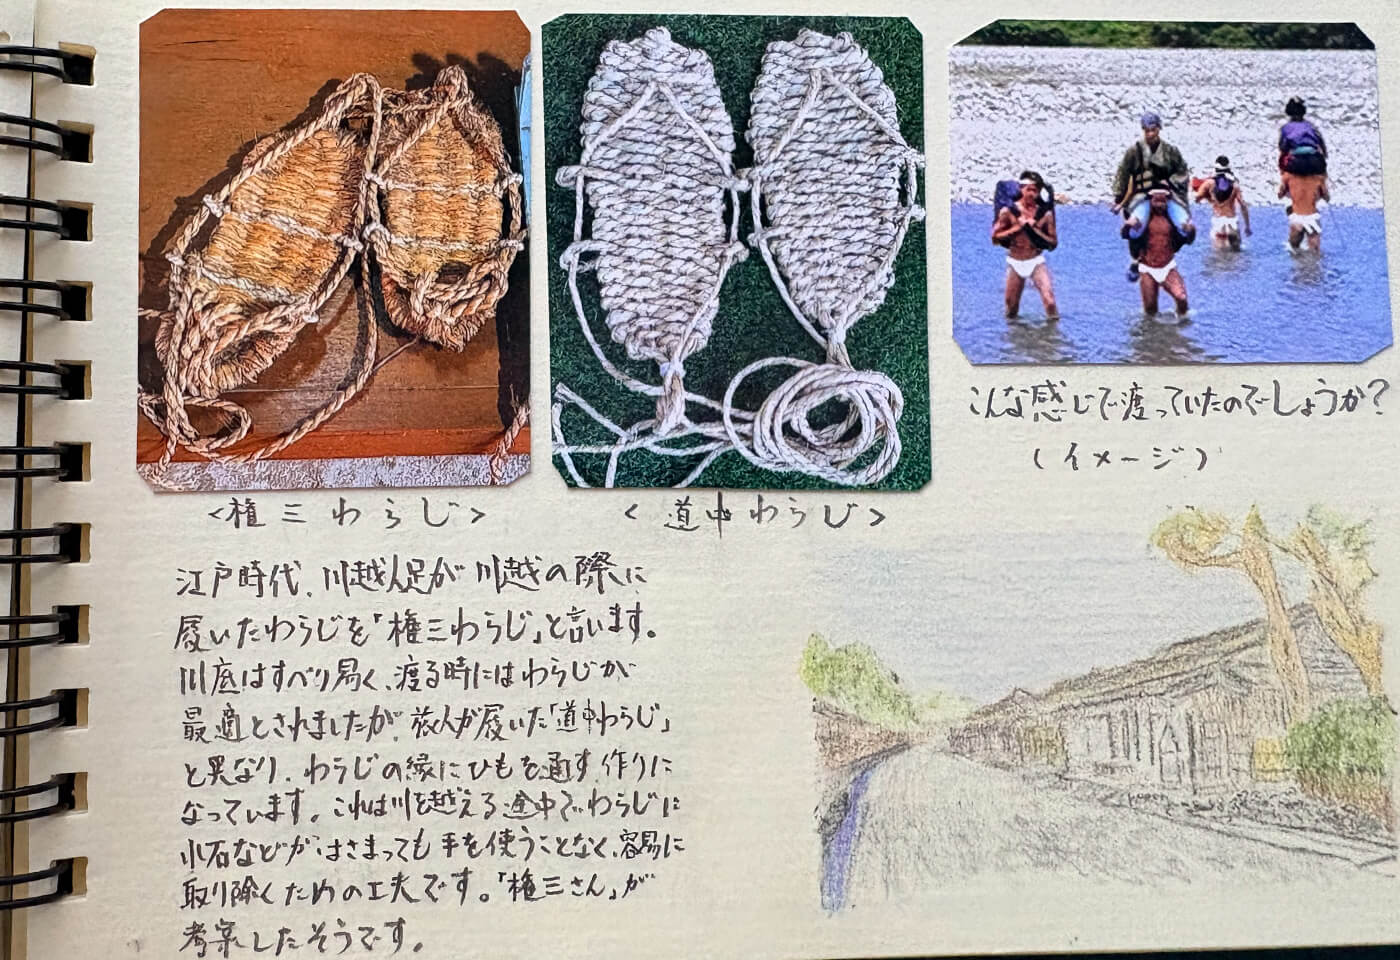 こんな感じで渡っていたのでしょうか?
(イメージ)
<権三わらじ>
<道中わらじ>
江戸時代、川越人足が川越の際に
履いたわらじを「権三わらじ」と言います。
川底はすべり易く、渡る時にはわらじが
最適とされましたが、旅人が履いた「道中わらじ」
と異なり、わらじの縁にひもを通す、作りに
なっています。これは川を越える途中でわらじに
小石などがはさまっても手を使うことなく、容易に
取り除くための工夫です。「権三さん」が
考案したそうです。